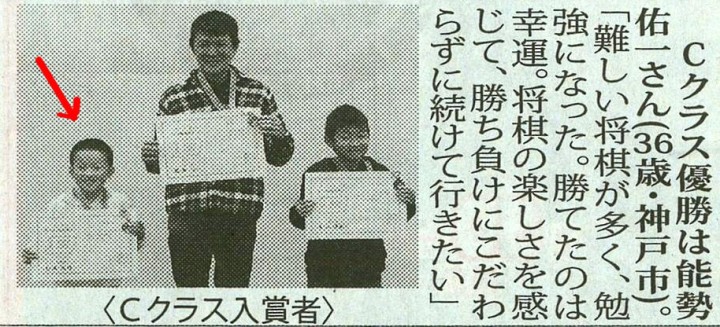 Cクラス優勝は能勢
佑一さん(36歳・神戸市)。
「難しい将棋が多く、勉
強になった。勝てたのは
幸運。将棋の楽しさを感
じて、勝ち負けにこだわ
らずに続けて行きたい」
〈Cクラス入賞者〉